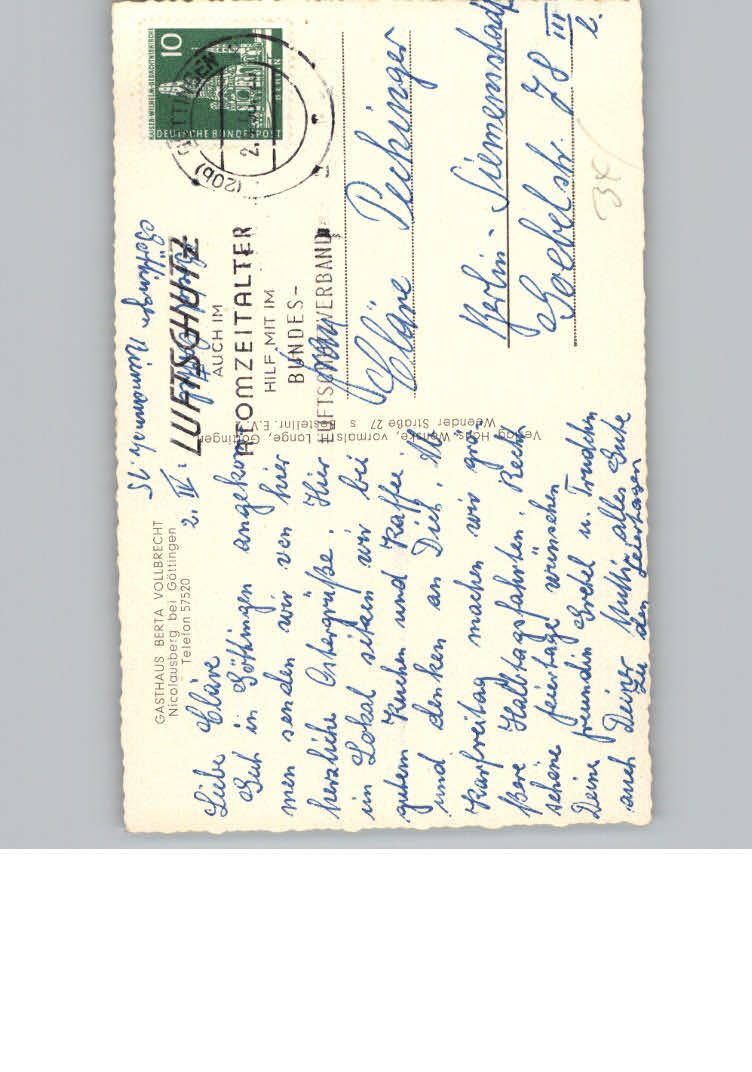 GASTHAUS BERTA VOLLBRECHT
Nicolausberg bei Göttingen
Telefon 57520
2. IV.
Liebe Cläre
Gut in Göttingen angekom
men senden wir von hier
herzliche Ostergrüße. Hier
im Lokal sitzen wir bei
gutem Kuchen und Kaffee
und denken an Dich. Ab
Karfreitag machen wir grö
ßere Halbtagsfahrten. Recht
schöne Feiertage wünschen
Deine Freundin Gretel u. Trudchen
auch Deiner Mutti alles Gute
zu den Feiertagen
Verlag Hans Wenske, vormals H. Lange, Göttingen
Weender Straße 27 s Bestellnr. E.V.
Göttingen 15
LUFTSCHUTZ
AUCH IM
ATOMZEITALTER
HILF MIT IM
BUNDES-
LUFTSCHUTZVERBAND
(20b) GÖTTINGEN
2.
10
KAISER-WILHELM-GEDÄCHTNISKIRCHE
DEUTSCHE BUNDESPOST
BERLIN
Cläre Pechinger
Berlin-Siemensstadt
Goebelstr. 78 III
l.
34